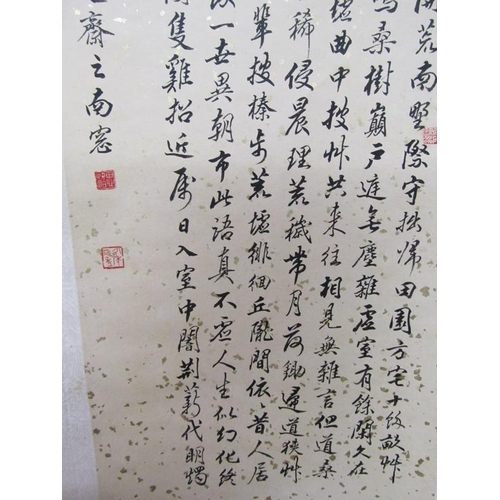 荒南埜際守拙歸田園方宅十餘畝艸
鳴桑樹巔戶庭無塵雜虛室有餘閒久在
墟曲中披艸共來往相見無雜言但道桑
稀侵晨理荒穢帶月荷鋤歸道狹艸
輩披榛步荒墟徘徊丘隴間依昔人居
一世異朝市此語真不虛人生似幻化終
隻雞招近局日入室中闇荊薪代明燭
齋之南窓